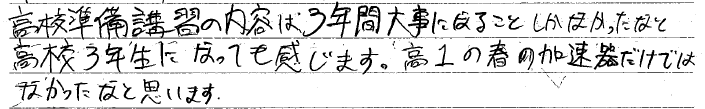 高校準備講習の内容は3年間大事になることしかなかったなと
高校3年生になっても感じます。高1の春の加速器だけでは
なかったなと思います.